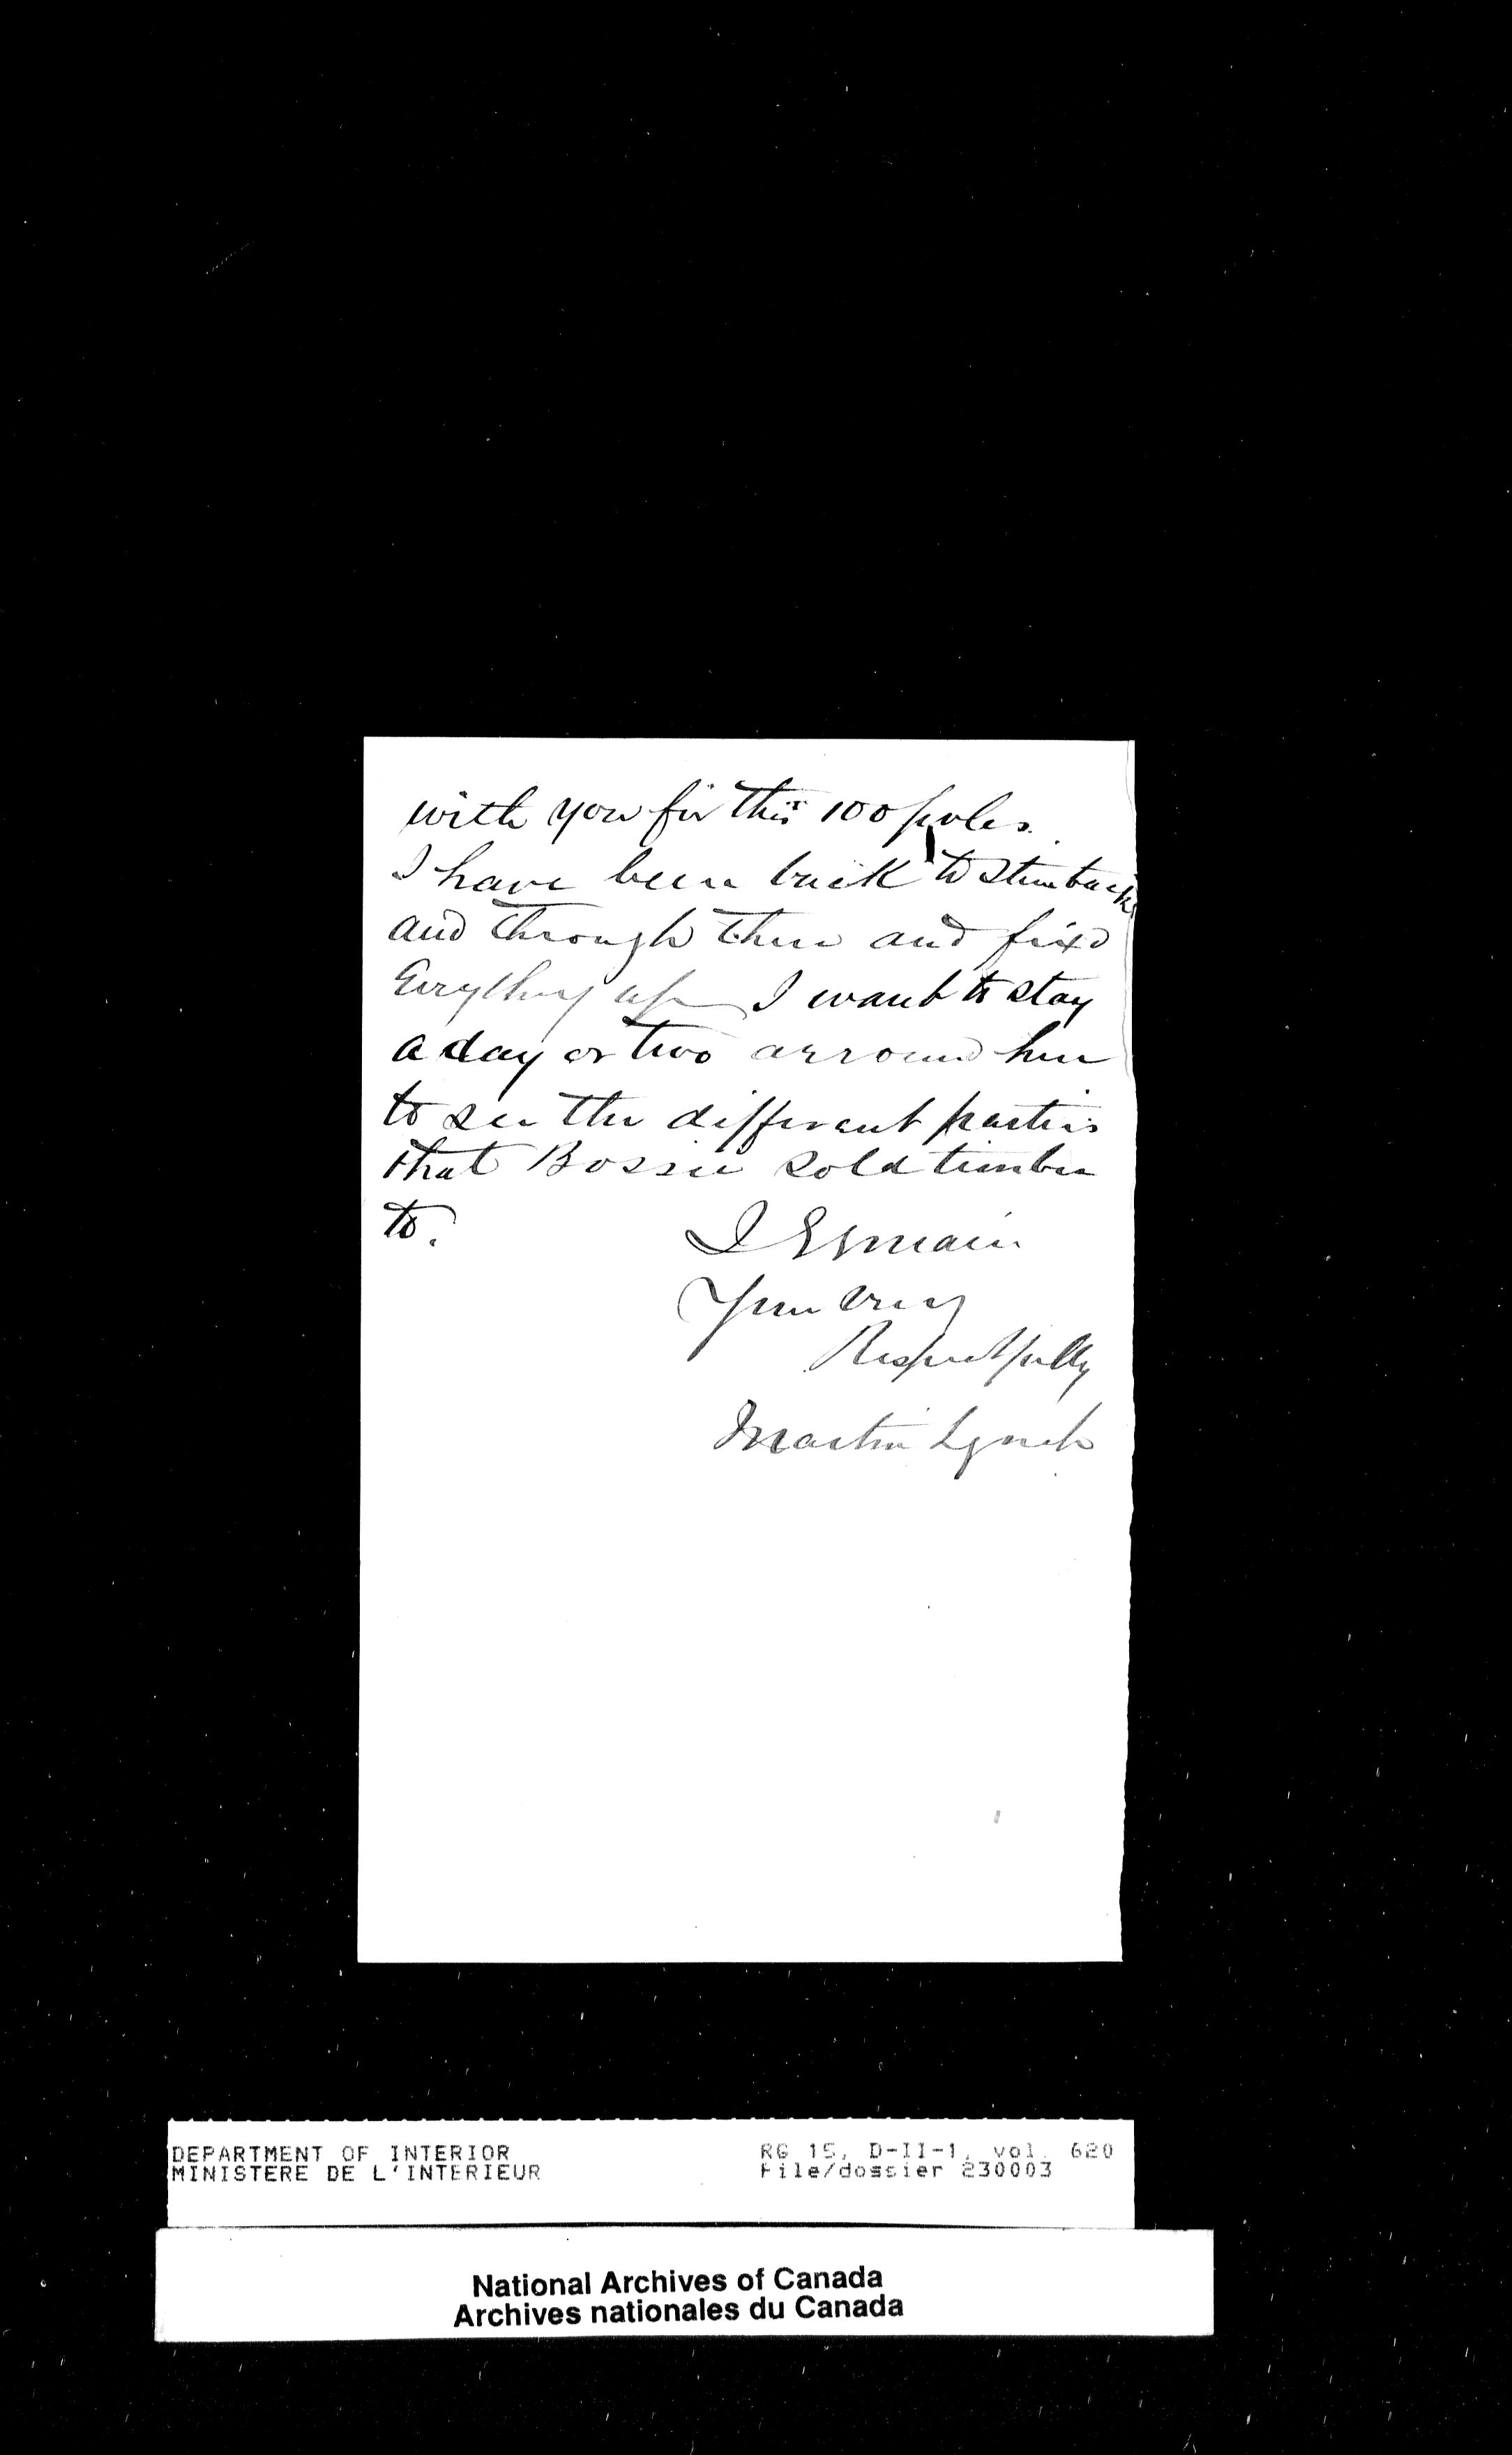 with you for this 100 poles.
I have been back to
and through there and fixd
Evrything up I want to stay
a day or two arround here
to see the different parties
that Bossie sold timber
to.
I Remain
Your Very
Respectfully
Martin Lynch
DEPARTMENT OF INTERIOR RG 15, D-II-1, vol. 620
MINISTERE DE L'INTERIEUR File/dossier 230003
National Archives of Canada
Archives nationales du Canada